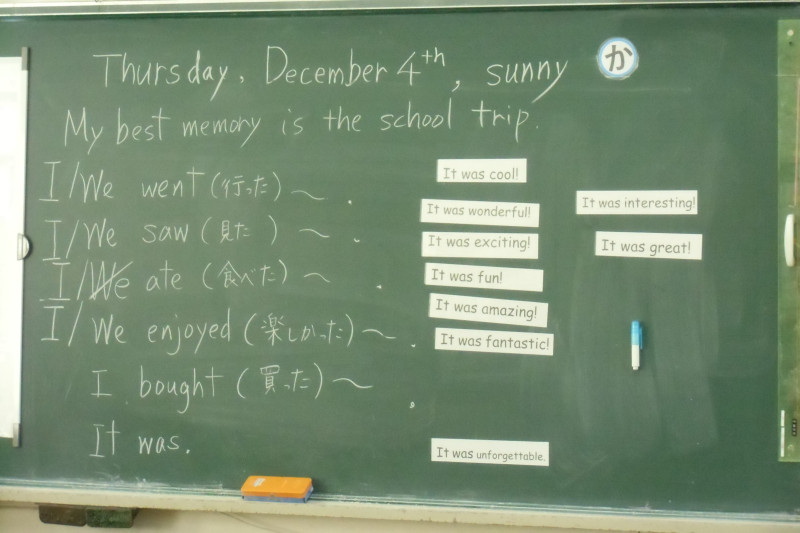 Thursday, December 4th, sunny か
My best memory is the school trip.
I/We went (行った) ～ .
I/We saw (見た ) ～ .
I/We ate (食べた) ～ .
I/We enjoyed (楽しかった) ～ .
I bought (買った) ～ .
It was.
It was cool!
It was wonderful!
It was exciting!
It was fun!
It was amazing!
It was fantastic!
It was unforgettable.
It was interesting!
It was great!